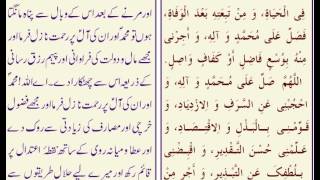 فِى الْحَيَاةِ، وَ مِنْ تَبِعَتِهِ بَعْدَ الْوَفَاةِ،
فَصَلِّ عَلَى مُحَمَّدٍ وَ آلِهِ، وَ أَجِرْنِى
مِنْهُ بِوُسْعٍ فَاضِلٍ أَوْ كَفَافٍ وَاصِلٍ.
اللَّهُمَّ صَلِّ عَلَى مُحَمَّدٍ وَ آلِهِ، وَ
احْجُبْنِى عَنِ السَّرَفِ وَ الِازْدِيَادِ، وَ
قَوِّمْنِى بِالْبَذْلِ وَ الِاقْتِصَادِ، وَ
عَلِّمْنِى حُسْنَ التَّقْدِيرِ، وَ اقْبِضْنِى
بِلُطْفِكَ عَنِ التَّبْذِيرِ، وَ أَجْرِ مِنْ
اور مرنے کے بعد اس کے وبال سے پناہ مانگتا
ہوں تو محمدؐ اور ان کی آلؑ پر رحمت نازل فرما اور
مجھے مال و دولت کی فراوانی اور پیہم رزق رسانی
کے ذریعہ اس سے چھٹکارا دے۔ اے اللہ! محمدؐ
اور ان کی آلؑ پر رحمت نازل فرما اور مجھے فضول
خرچی اور مصارف کی زیادتی سے روک دے
اور عطا و میانہ روی کے ساتھ نقطۂ اعتدال پر
قائم رکھ اور میرے لیے حلال طریقوں سے